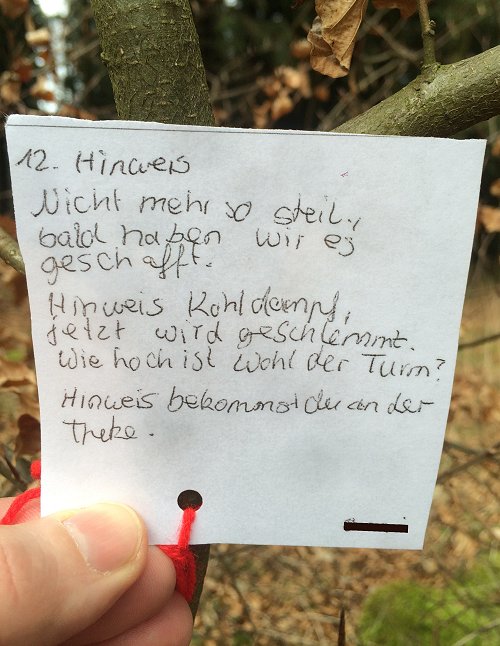 12. Hinweis
Nicht mehr so steil,
bald haben wir es
geschafft.
Hinweis Kohldampf,
jetzt wird geschlemmt.
Wie hoch ist wohl der Turm?
Hinweis bekommst du an der
Theke.